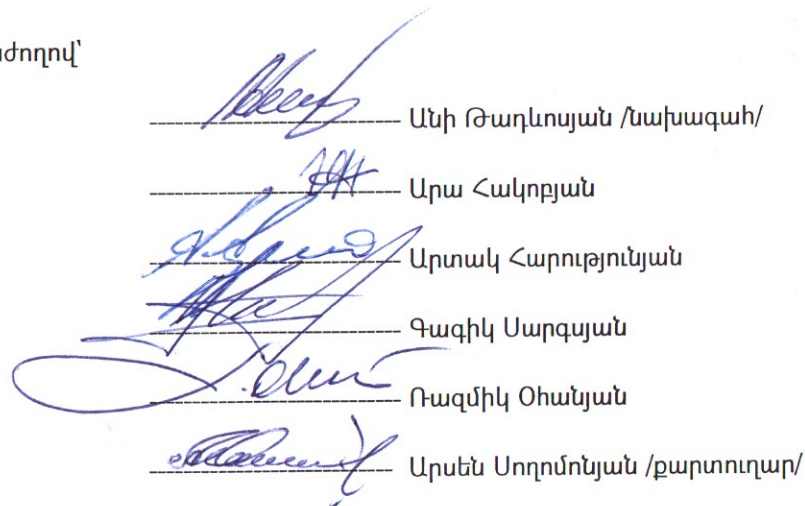 ժողով՝
Անի Թադևոսյան /նախագահ/
Արա Հակոբյան
Արտակ Հարությունյան
Գագիկ Սարգսյան
Ռազմիկ Օհանյան
Արսեն Սողոմոնյան /քարտուղար/